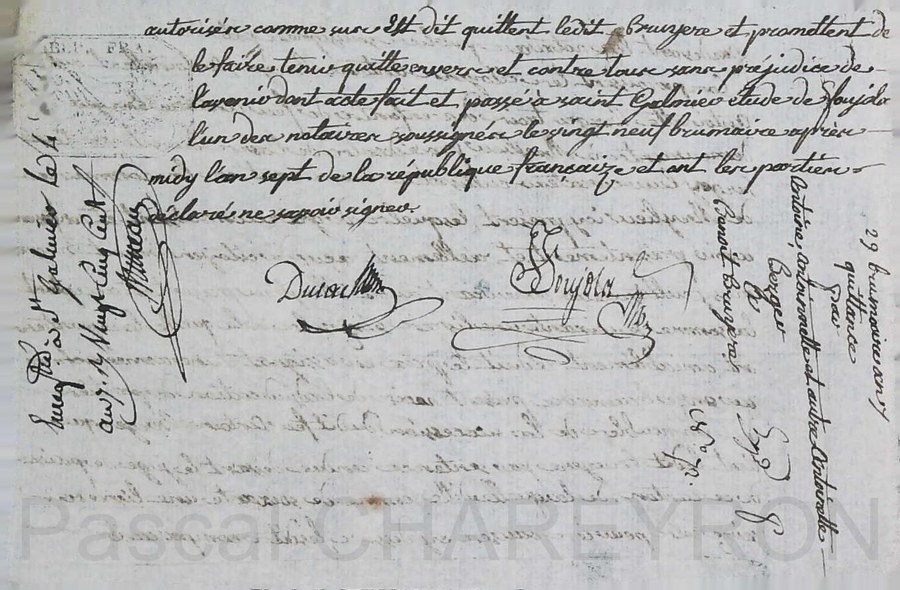 autorisés comme sus Est dit quittent ledit Bruyere et promettent de
le faire tenir quitte envers et contre tous sans préjudice de
l'avenir dont acte fait et passé à saint Galmier étude de Foujols
l'un des notaires soussignés le vingt neuf brumaire après
midy l'an sept de la république françaize et ont les parties
déclaré ne savoir signer.
Foujols
à St Galmier le
an 7.
29 brumaire an 7
quittance
par
antoine, antoinette et autre antoinette
Berger
à
Benoit Bruyere
Exp
N° 72.
Pascal CHAREYRON